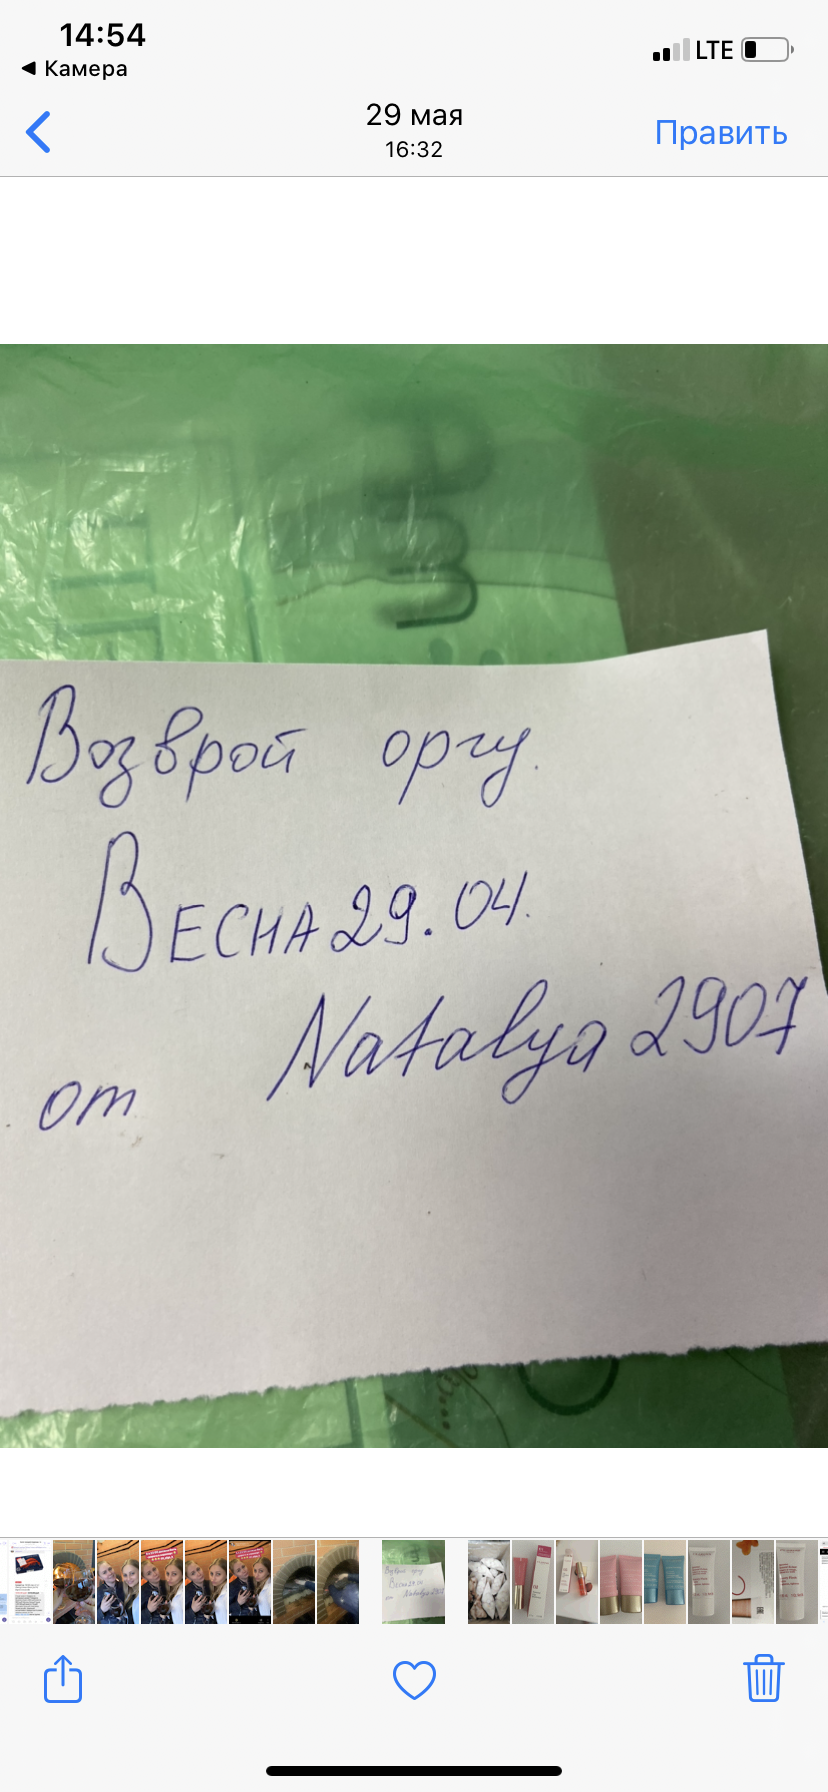 14:54
LTE
Камера
29 мая
16:32
Править
Возврат оргу.
ВЕСНА29.04.
от Natalya2907